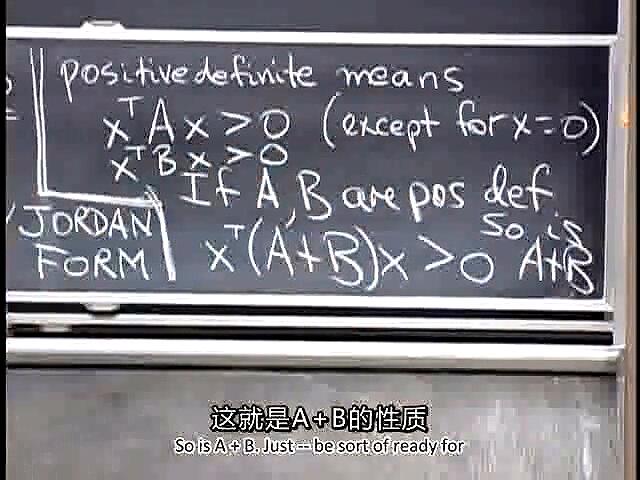 positive definite means
xᵀAx > 0 (except for x = 0)
xᵀBx > 0
If A, B are pos def
so is
xᵀ(A+B)x > 0 A+B
JORDAN
FORM
这就是A+B的性质
So is A + B. Just -- be sort of ready for